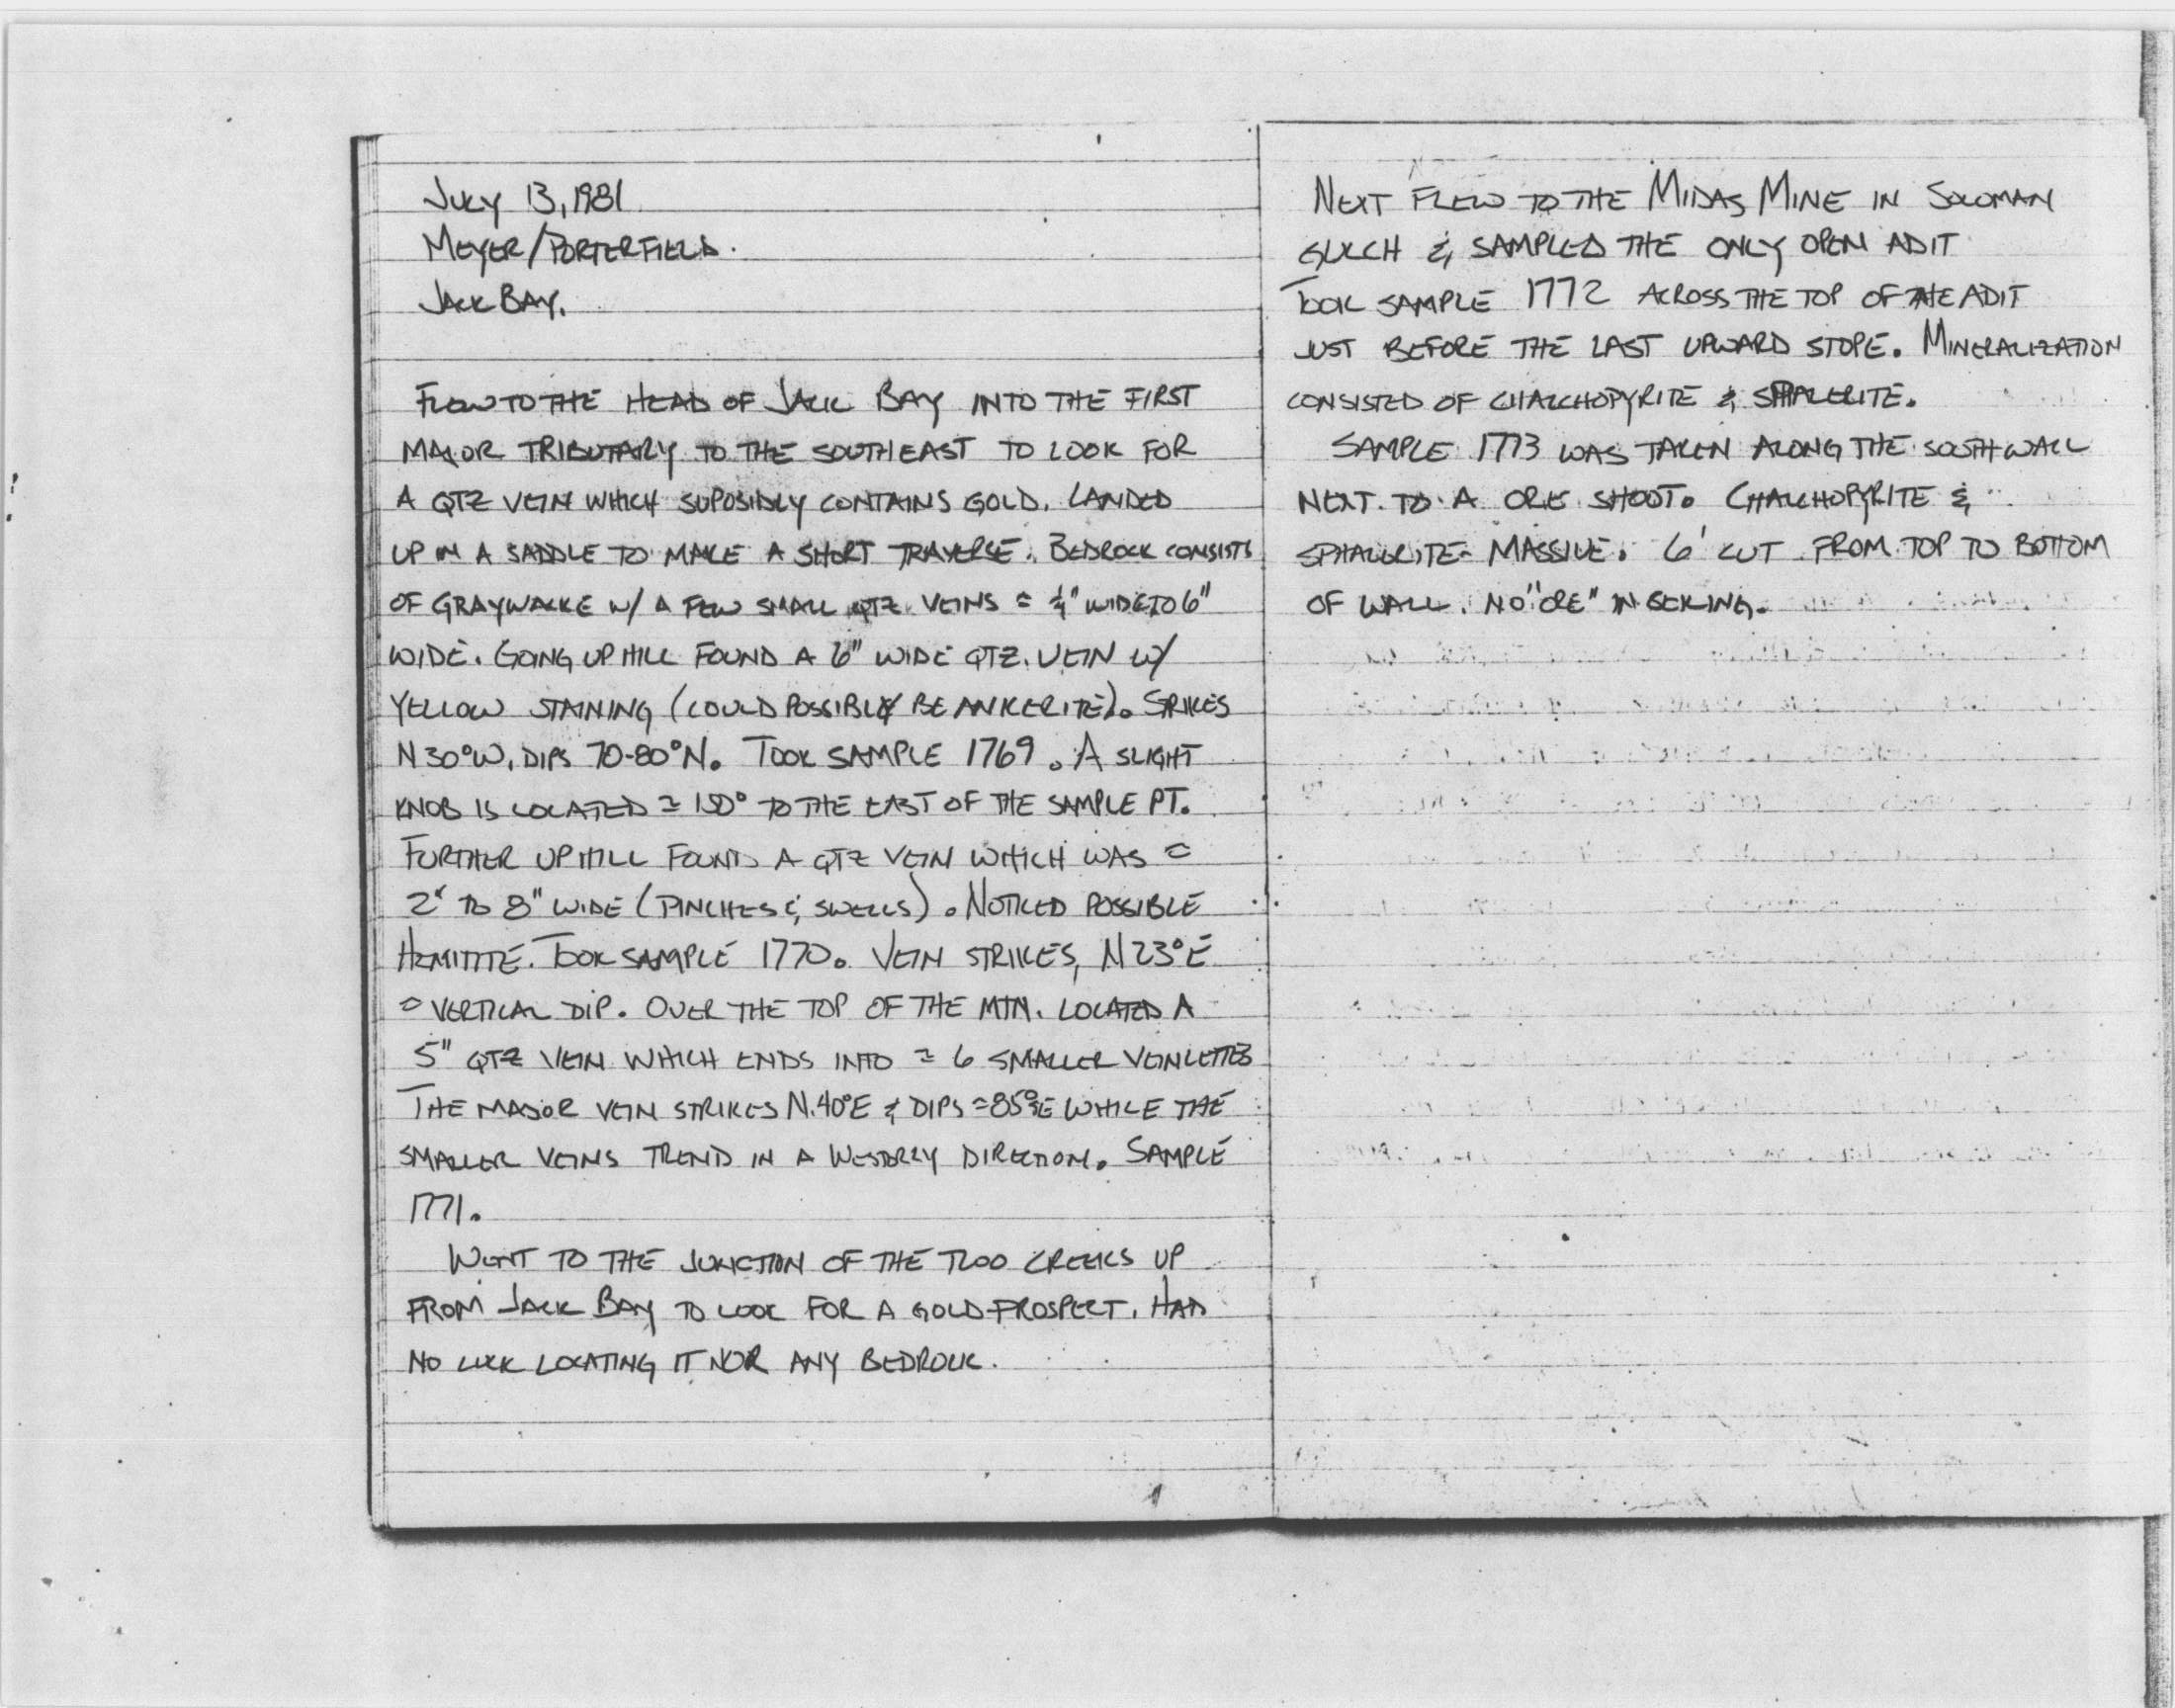 JULY 13, 1981
MEYER/PORTERFIELD.
JACK BAY.
FLEW TO THE HEAD OF JACK BAY INTO THE FIRST
MAJOR TRIBUTARY TO THE SOUTHEAST TO LOOK FOR
A QTZ VEIN WHICH SUPOSIDLY CONTAINS GOLD. LANDED
UP IN A SADDLE TO MAKE A SHORT TRAVERSE. BEDROCK CONSISTS
OF GRAYWACKE W/ A FEW SMALL QTZ. VEINS ≈ 1/4" WIDE TO 6"
WIDE. GOING UP HILL FOUND A 6" WIDE QTZ. VEIN W/
YELLOW STAINING (COULD POSSIBLY BE ANKERITE). STRIKES
N30°W, DIPS 70-80°N. TOOK SAMPLE 1769. A SLIGHT
KNOB IS LOCATED ≈ 150° TO THE EAST OF THE SAMPLE PT.
FURTHER UP HILL FOUND A QTZ VEIN WHICH WAS ≈
2" TO 8" WIDE (PINCHES & SWELLS). NOTICED POSSIBLE
HEMITITE. TOOK SAMPLE 1770. VEIN STRIKES, N23°E
≈ VERTICAL DIP. OVER THE TOP OF THE MTN. LOCATED A
5" QTZ VEIN WHICH ENDS INTO ≈ 6 SMALLER VEINLETTES
THE MAJOR VEIN STRIKES N.40°E & DIPS ≈85°SE WHILE THE
SMALLER VEINS TREND IN A WESTERLY DIRECTION. SAMPLE
1771.
WENT TO THE JUNCTION OF THE TWO CREEKS UP
FROM JACK BAY TO LOOK FOR A GOLD PROSPECT. HAD
NO LUCK LOCATING IT NOR ANY BEDROCK.
NEXT FLEW TO THE MIDAS MINE IN SOLOMAN
GULCH & SAMPLED THE ONLY OPEN ADIT
TOOK SAMPLE 1772 ACROSS THE TOP OF THE ADIT
JUST BEFORE THE LAST UPWARD STOPE. MINERALIZATION
CONSISTED OF CHALCHOPYRITE & SPHALERITE.
SAMPLE 1773 WAS TAKEN ALONG THE SOUTH WALL
NEXT TO A ORE SHOOT. CHALCHOPYRITE &
SPHALERITE - MASSIVE. 6' CUT FROM TOP TO BOTTOM
OF WALL. NO "ORE" IN CEILING.